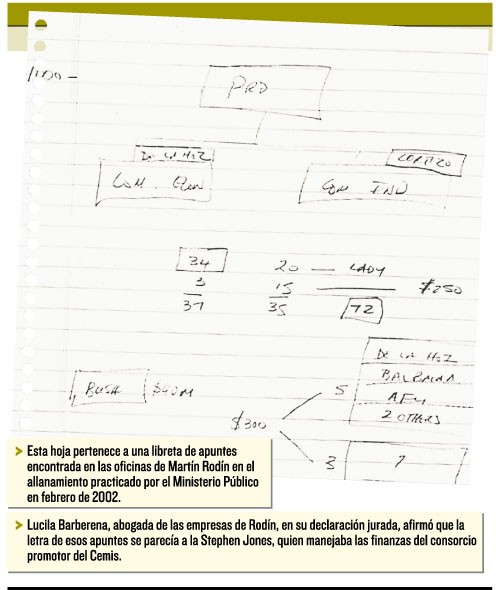 1100 -
PRD
DE LA HOZ
CORTIZO
COM.
COM IND
34 20 — LADY
3 15 $250
37 35 72
DE LA HOZ
BALBINA
BUSH $50M 5 AFU
2 OTHERS
$300
3 7
> Esta hoja pertenece a una libreta de apuntes
encontrada en las oficinas de Martín Rodín en el
allanamiento practicado por el Ministerio Público
en febrero de 2002.
> Lucila Barberena, abogada de las empresas de Rodín, en su declaración jurada, afirmó que la
letra de esos apuntes se parecía a la Stephen Jones, quien manejaba las finanzas del consorcio
promotor del Cemis.